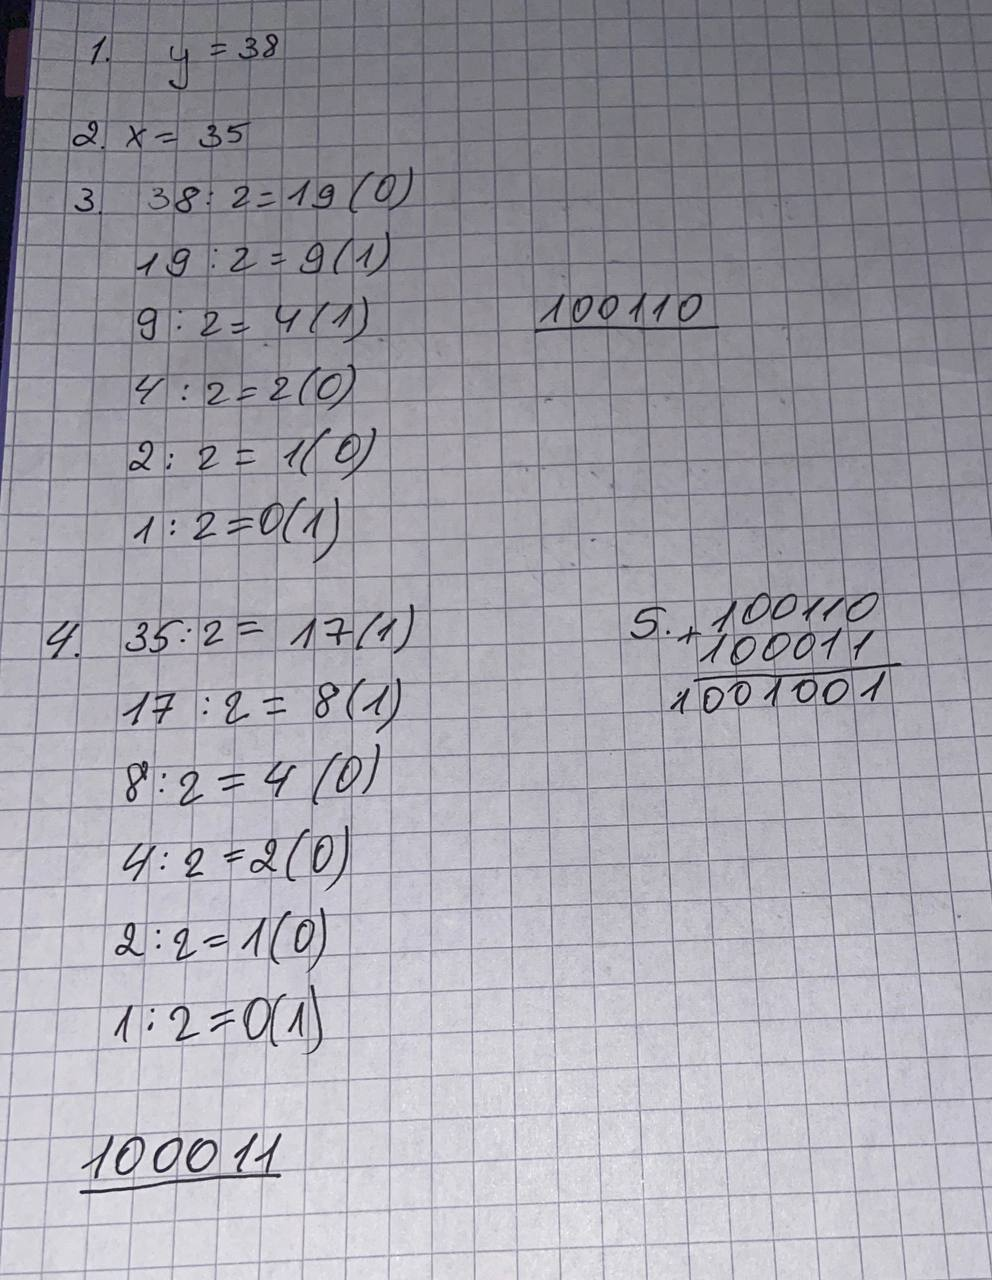 1. y = 38
2. x = 35
3. 38 : 2 = 19 (0)
19 : 2 = 9 (1)
9 : 2 = 4 (1)
100110
4 : 2 = 2 (0)
2 : 2 = 1 (0)
1 : 2 = 0 (1)
4. 35 : 2 = 17 (1)
17 : 2 = 8 (1)
8 : 2 = 4 (0)
4 : 2 = 2 (0)
2 : 2 = 1 (0)
1 : 2 = 0 (1)
100011
5. 100110
+ 100011
1001001